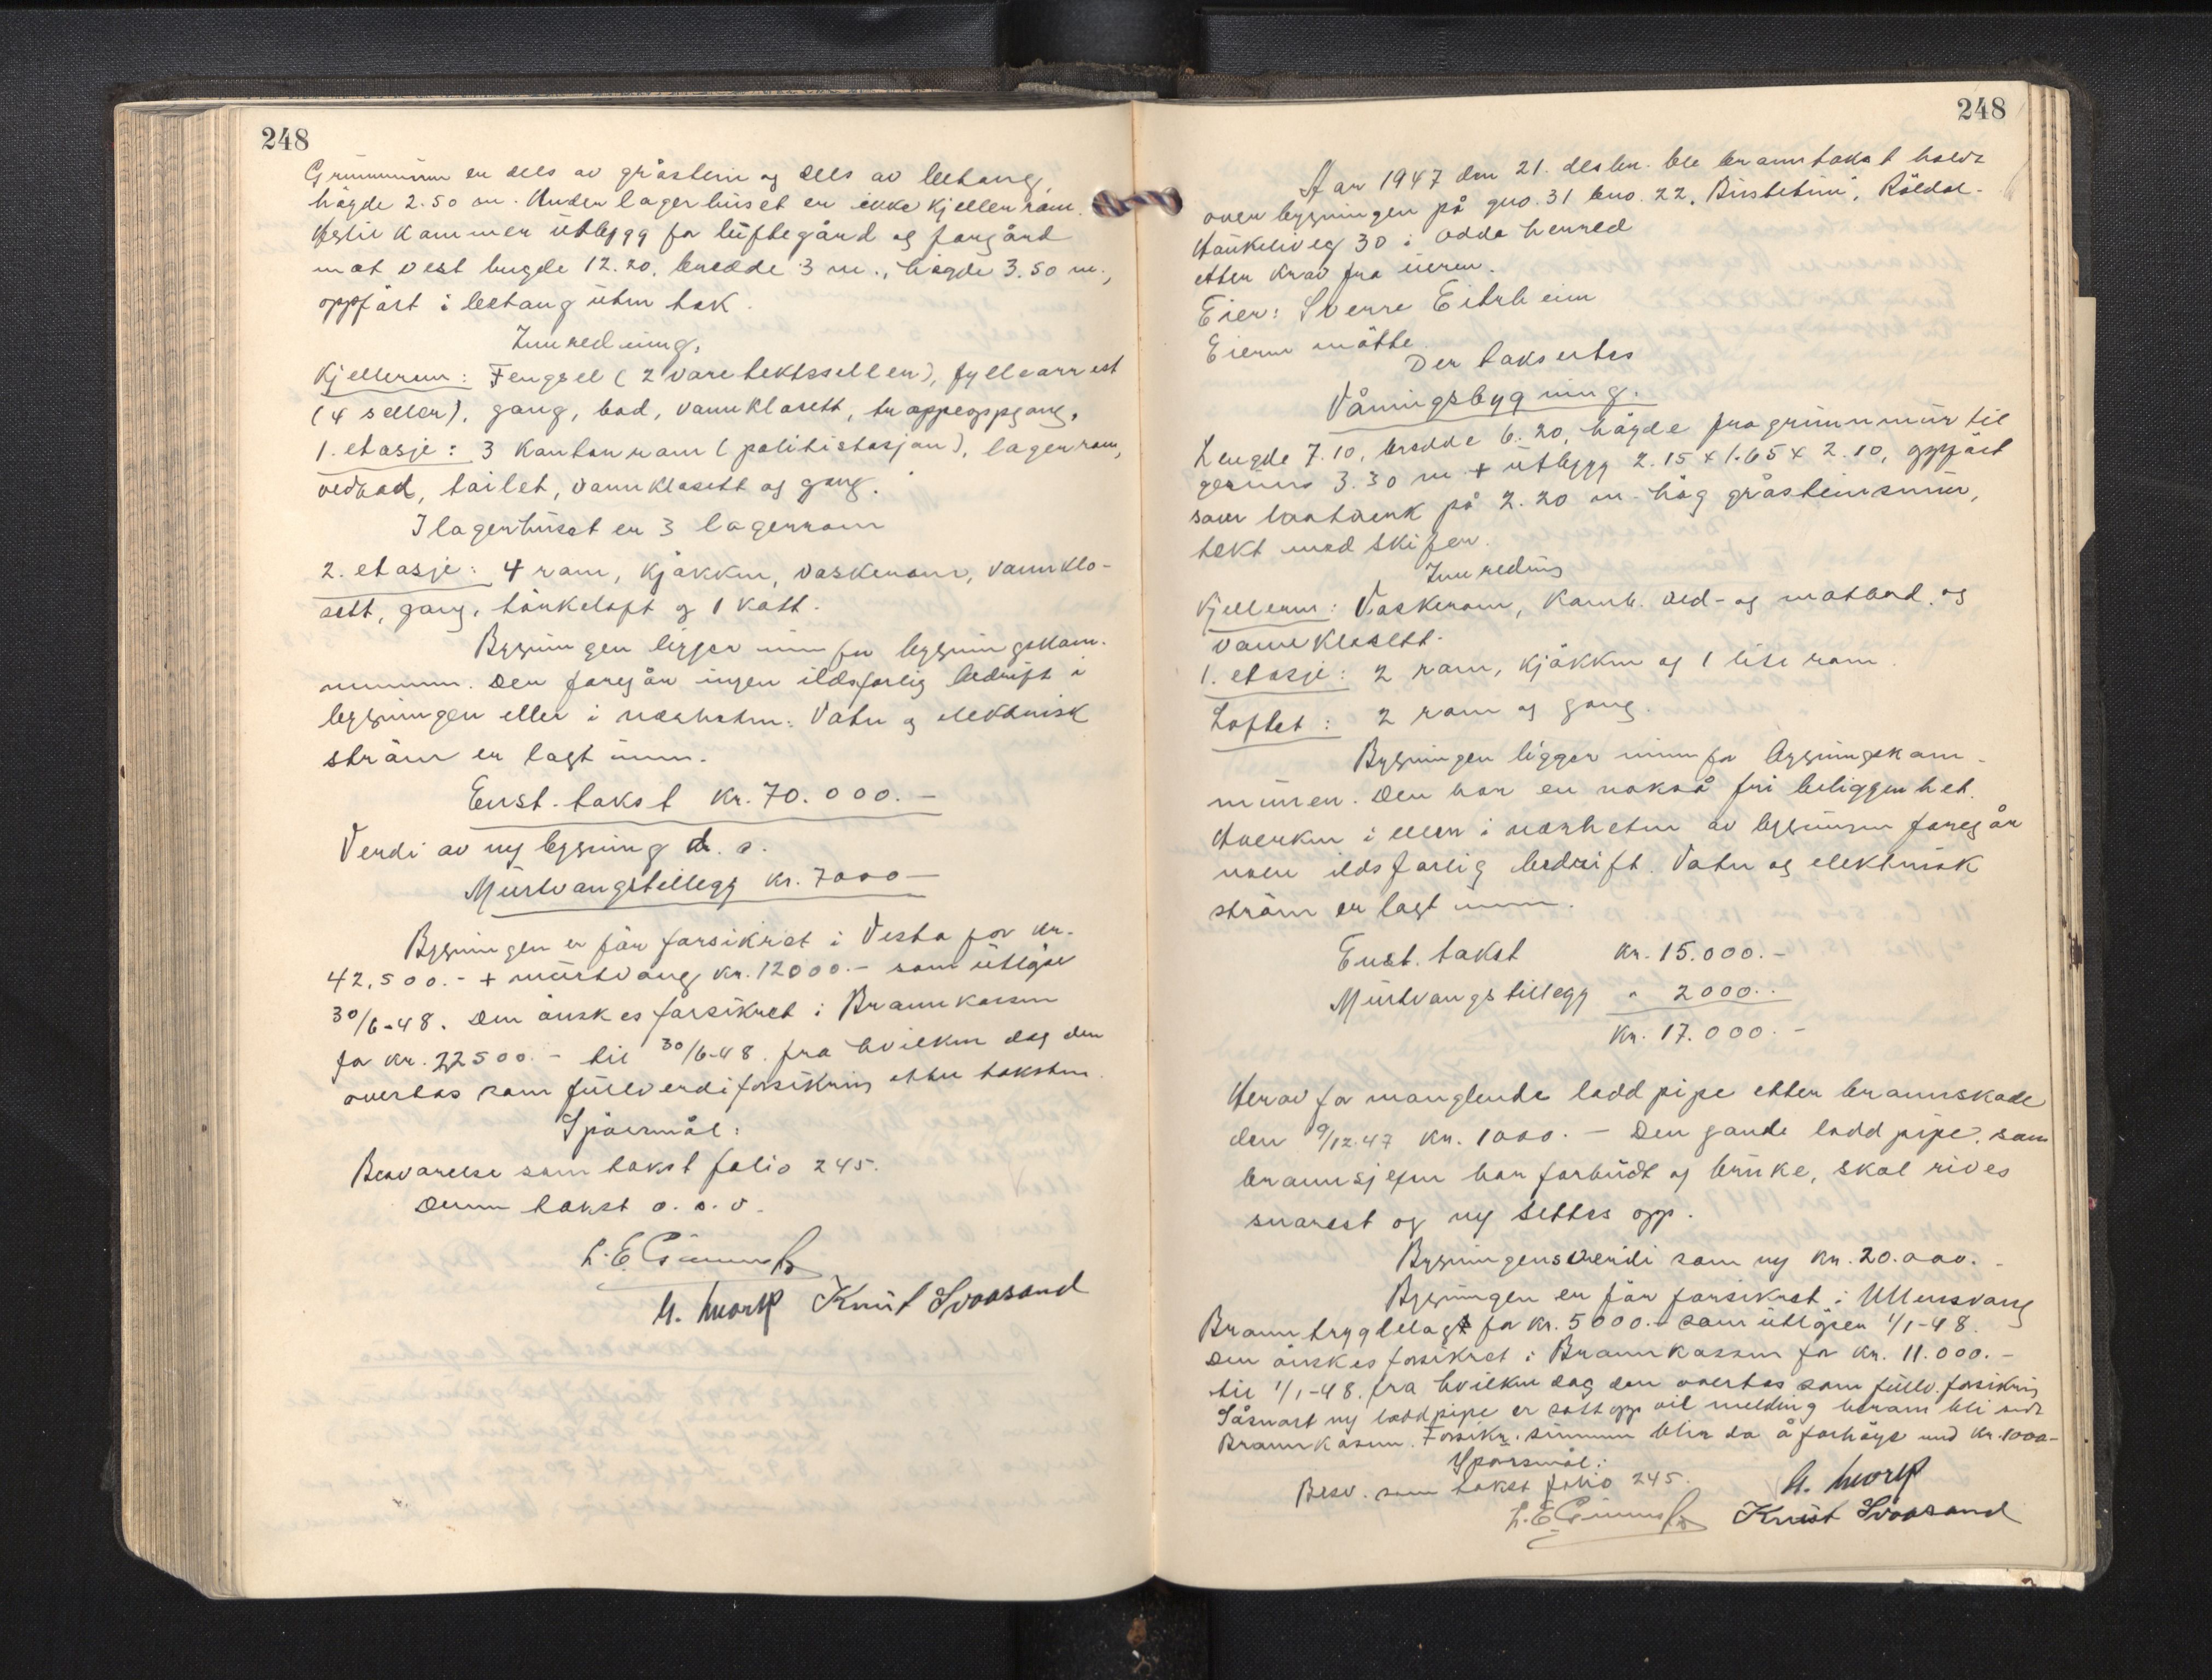 248
Grunnmuren er dels av gråstein og dels av betong,
högde 2.50 m. Under lagerhuset er ikke kjellerrom.
Hertil kommer utbygg for luftegård og forgård
mot vest lengde 12.20, bredde 3 m., högde 3.50 m.,
oppfört i betong uten tak.
Innredning.
Kjelleren: Fengsel (2 varetektsseller), fyllearrest
(4 seller), gang, bad, vannklosett, trappeoppgang.
1. etasje: 3 kontorrom (politistasjon), lagerrom,
vedbod, toilet, vannklosett og gang.
I lagerhuset er 3 lagerrom
2. etasje: 4 rom, kjökken, vaskerom, vannklo-
sett, gang, törkeloft og 1 kott.
Bygningen ligger innfor bygningskom-
munen. Der foregår ingen ildsfarlig bedrift i
bygningen eller i nærheten. Vatn og elektrisk
ström er lagt inn.
Enst. takst kr. 70.000.-
Verdi av ny bygning d. s.
Murtvangstillegg kr. 7000-
Bygningen er för forsikret i Vesta for kr.
42.500.- + murtvang kr. 12000.- som utlöper
30/6-48. Den önskes forsikret i Brannkassen
for kr. 22500.- til 30/6-48. fra hvilken dag den
overtas som fullverdiforsikring etter taksten.
Spörsmål:
Besvarelse som takst folio 245.
Denne takst o. s. v.
L. E.
H. Mork Knut Svoasand
248
Aar 1947 den 21. desbr. ble branntakst holdt
over bygningen på gno. 31 bno. 22, Röldal-
Haukeliveg 30 i Odda herred
etter krav fra eieren.
Eier: Sverre Eitrheim
Eieren mötte.
Der taksertes
Våningsbygning.
Lengde 7.10, bredde 6.20, högde fra grunnmur til
gesims 3.30 m + utbygg 2.15 x 1.65 x 2.10, oppfört
som på 2.20 m. hög gråsteinsmur,
tekt med skifer.
Innredning
Kjelleren: Vaskerom, komb. ved- og matbod, og
vannklosett.
1. etasje: 2 rom, kjökken og 1 lite rom.
Loftet: 2 rom og gang.
Bygningen ligger innfor bygningskom-
munen. Den har en nokså fri beliggenhet.
Hverken i eller i nærheten av bygningen foregår
noen ildsfarlig bedrift. Vatn og elektrisk
ström er lagt inn.
Enst. takst kr. 15.000.-
Murtvangstillegg " 2000.-
Kr. 17.000.-
Herav for manglende lodd pipe etter brannskade
den 9/12.47 kr. 1000.- Den gamle lodd pipe, som
brannsjefen har forbudt og bruke, skal rives
snarest og ny settes opp.
Bygningens verdi som ny kr. 20.000.-
Bygningen er för forsikret i Ullensvang
Branntrygdelag for kr. 5000.- som utlöper 1/1-48.
Den önskes forsikret i Brannkassen for kr. 11.000.-
til 1/1-48. fra hvilken dag den overtas som fullv. forsikring
Såsnart ny loddpipe er satt opp vil melding herom bli sendt
Brannkassen. Forsikr. summen blir da å forhöye med kr. 1000-
Spörsmål:
Besv. som takst folio 245.
H. Mork
L. E. Knut Svoasand